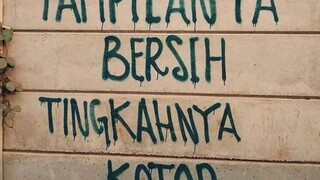 TAMPILANYA
BERSIH
TINGKAHNYA
KOTOR